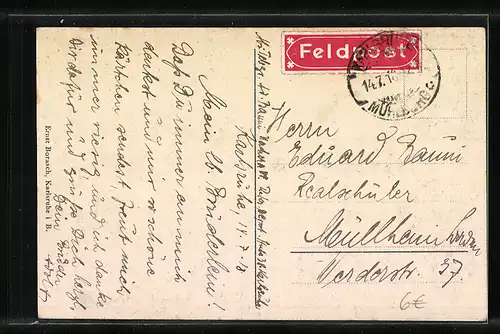 Karlsruhe, 14.7.18
Mein lb. Brüderlein!
Daß Du immer an mich
denkst und mir so schöne
Kärtchen sendest, freut mich
immer riesig und ich danke
Dir dafür und grüße Dich herzl.
Dein Bruder
Adolf
Ernst Borasch, Karlsruhe i B.
Feldpost
14.7.18
MÜHLBURG
Herrn
Eduard
Realschüler
Müllheim Baden
Werderstr. 37.
6€